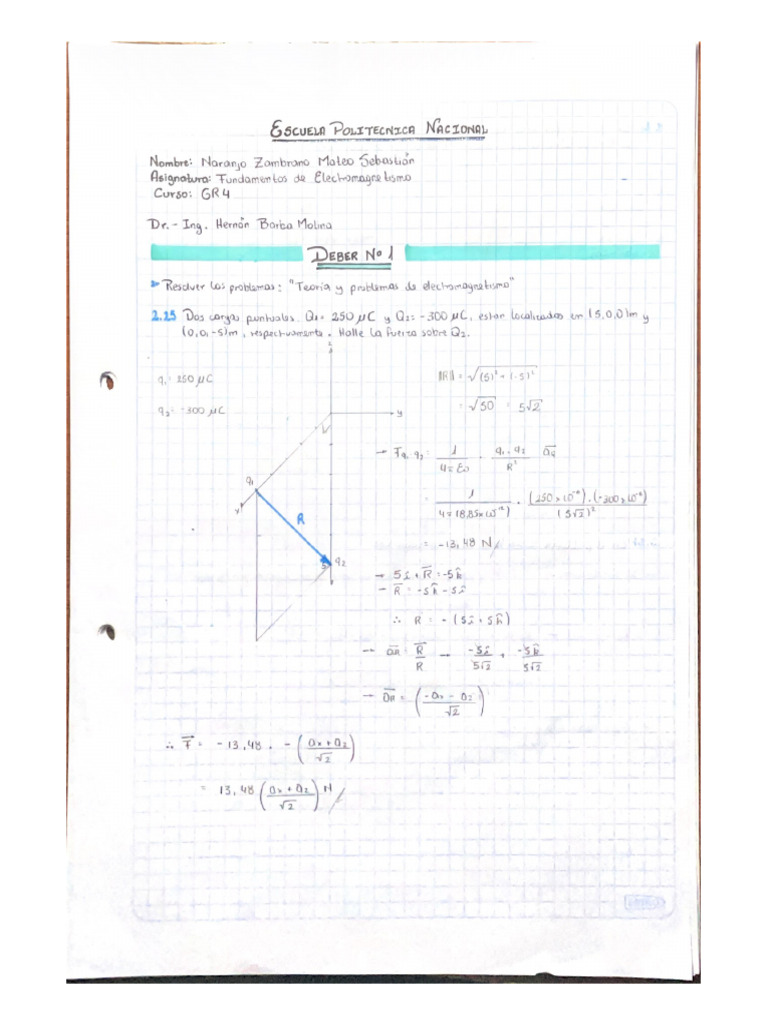 ESCUELA POLITECNICA NACIONAL
Nombre: Naranjo Zambrano Mateo Sebastión
Asignatura: Fundamentos de Electromagnetismo
Curso: GR4
Dr.- Ing. Hernón Barba Molina
DEBER Nº 1
Resolver los problemas: "Teoría y problemas de electromagnetismo"
2.25 Dos cargas puntuales, Q1= 250 μC y Q2= -300 μC, estan localizadas en (5,0,0)m y
(0,0,-5)m, respectivamente. Halle la fuerza sobre Q2.
z
q1= 250 μC
q2= -300 μC
y
q1
x
R
5
q2
|R| = √(5)²+(-5)²
= √50 = 5√2
→ Fq1 q2 = 1/4πEo . q1.q2/R² aR
= 1/4π(8,85x10⁻¹²) . (250x10⁻⁶).(-300x10⁻⁶)/(5√2)²
= -13,48 N
→ 5î + R = -5k̂
- R = -5k̂ - 5î
∴ R = - (5î + 5k̂)
→ aR = R/R → -5î/5√2 + -5k̂/5√2
→ aR = (-ax - az/√2)
∴ F = -13,48 . - (ax + az/√2)
= 13,48 (ax + az/√2) N